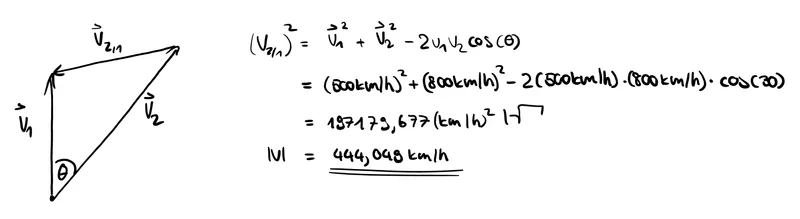 V⃗₂/₁
V⃗₁
V⃗₂
θ
(V₂/₁)² = V⃗₁² + V⃗₂² - 2v₁v₂ cos(θ)
= (500km/h)² + (800km/h)² - 2(500km/h)·(800km/h)· cos(30)
= 197179,677 (km/h)² |√
|v| = 444,049 km/h